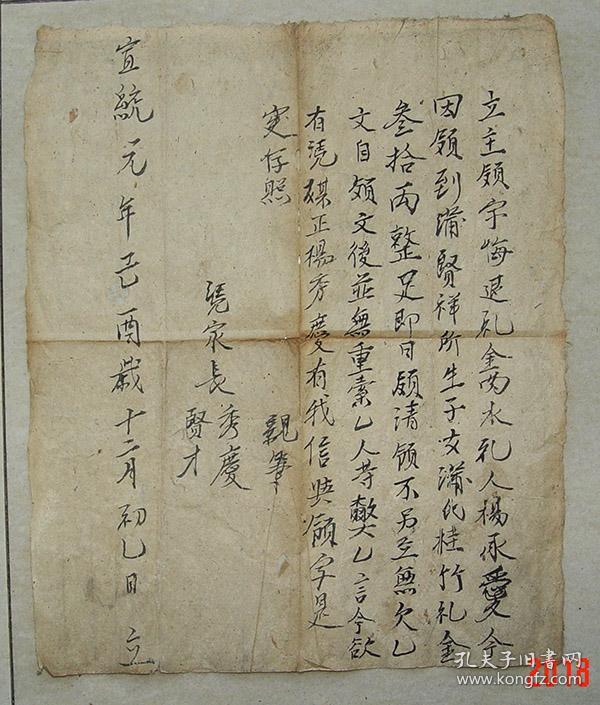 立主領字悔退礼金両水礼人楊承愛今
因領到蒲賢祥所生子女蒲化桂竹礼金
叁拾両整足即日領清領不另立無欠乚
文自領文後並無重索乚人等乚言今欲
有凴媒正楊秀慶有我信領字是
寔存照
親筆
凴家長秀慶
賢才
宣統元年己酉歲十二月初乚日立
孔夫子旧書网
www.kongfz.com
2013